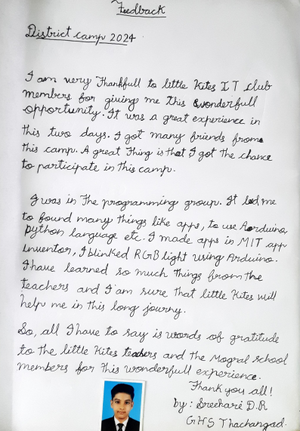 Feedback
District camp 2024
I am very Thankfull to little Kites IT club
members for giving me this wonderfull
opportunity. It was a great experience in
this two days. I got many friends from
this camp. A great Thing is that I got the chance
to participate in this camp.
I was in The programming group. It led me
to found many things like apps, to use Aorduino
python language etc. I made apps in MIT app
inventor, I blinked RGB light using Arduino.
I have learned so much things from the
teachers and I am sure that little Kites will
help me in this long journy.
So, all I have to say is words of gratitude
to the little Kites teachers and the Mogral school
members for this wonderfull experience.
Thank you all!
by: Sreehari D.R
GHS Thachangad.